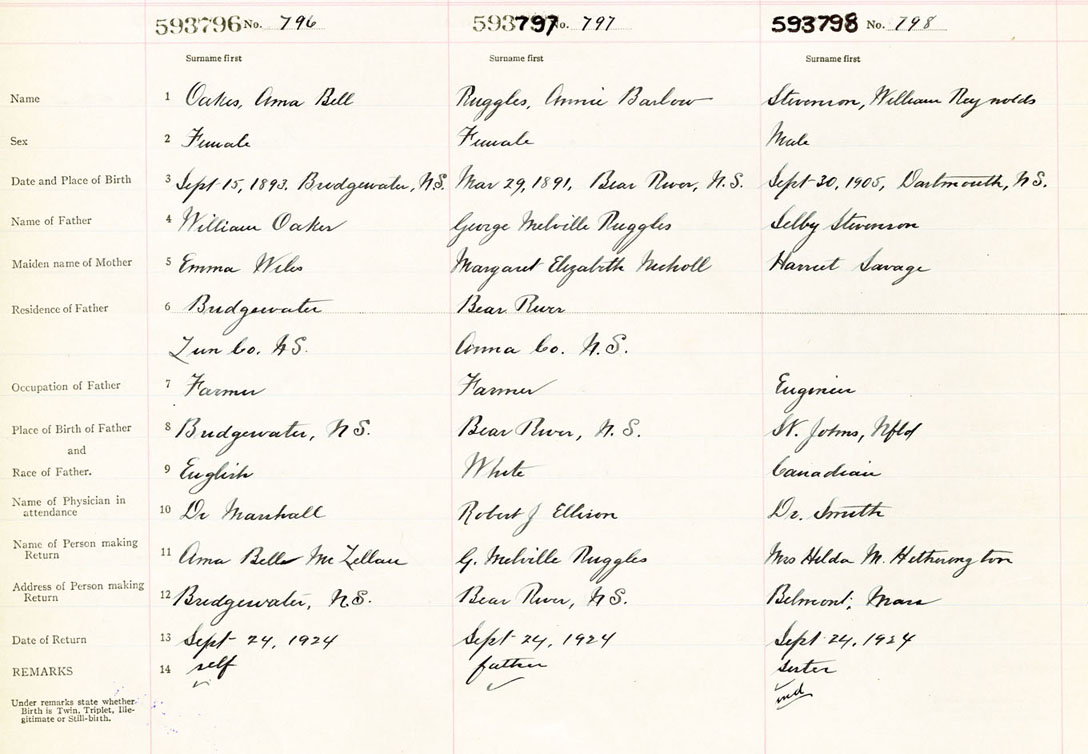 593796 No. 796 593797 No. 797 593798 No. 798
Surname first Surname first Surname first
Name 1 Oakes, Ama Bell Ruggles, Annie Barlow Stevenson, William Reynolds
Sex 2 Female Female Male
Date and Place of Birth 3 Sept 15, 1893. Bridgewater, N.S. Mar 29, 1891, Bear River, N.S. Sept 30, 1905, Dartmouth, N.S.
Name of Father 4 William Oakes George Melville Ruggles Selby Stevenson
Maiden name of Mother 5 Emma Wiles Margaret Elizabeth Nicholl Harriet Savage
Residence of Father 6 Bridgewater Bear River
Lun Co. N.S. Anna Co. N.S.
Occupation of Father 7 Farmer Farmer Engineer
Place of Birth of Father 8 Bridgewater, N.S. Bear River, N.S. St. Johns, Nfld
and
Race of Father. 9 English White Canadian
Name of Physician in
attendance 10 Dr Marshall Robert J Ellison Dr. Smith
Name of Person making
Return 11 Ama Belle McLellan G. Melville Ruggles Mrs Hilda M. Hetherington
Address of Person making
Return 12 Bridgewater, N.S. Bear River, N.S. Belmont, Mass
Date of Return 13 Sept 24, 1924 Sept 24, 1924 Sept 24, 1924
REMARKS 14 self father sister
Under remarks state whether
Birth is Twin, Triplet, Ille-
gitimate or Still-birth.